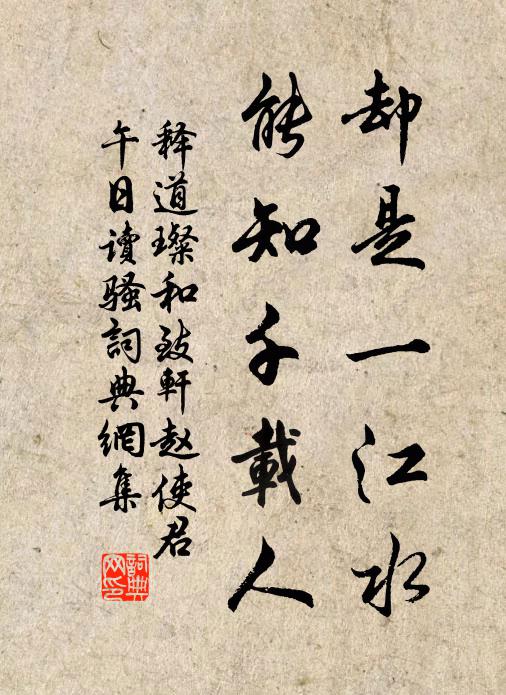 却是一江水
能知千載人
释道璨和致軒赵使君
午日讀骚詞典網集
詞典
网印